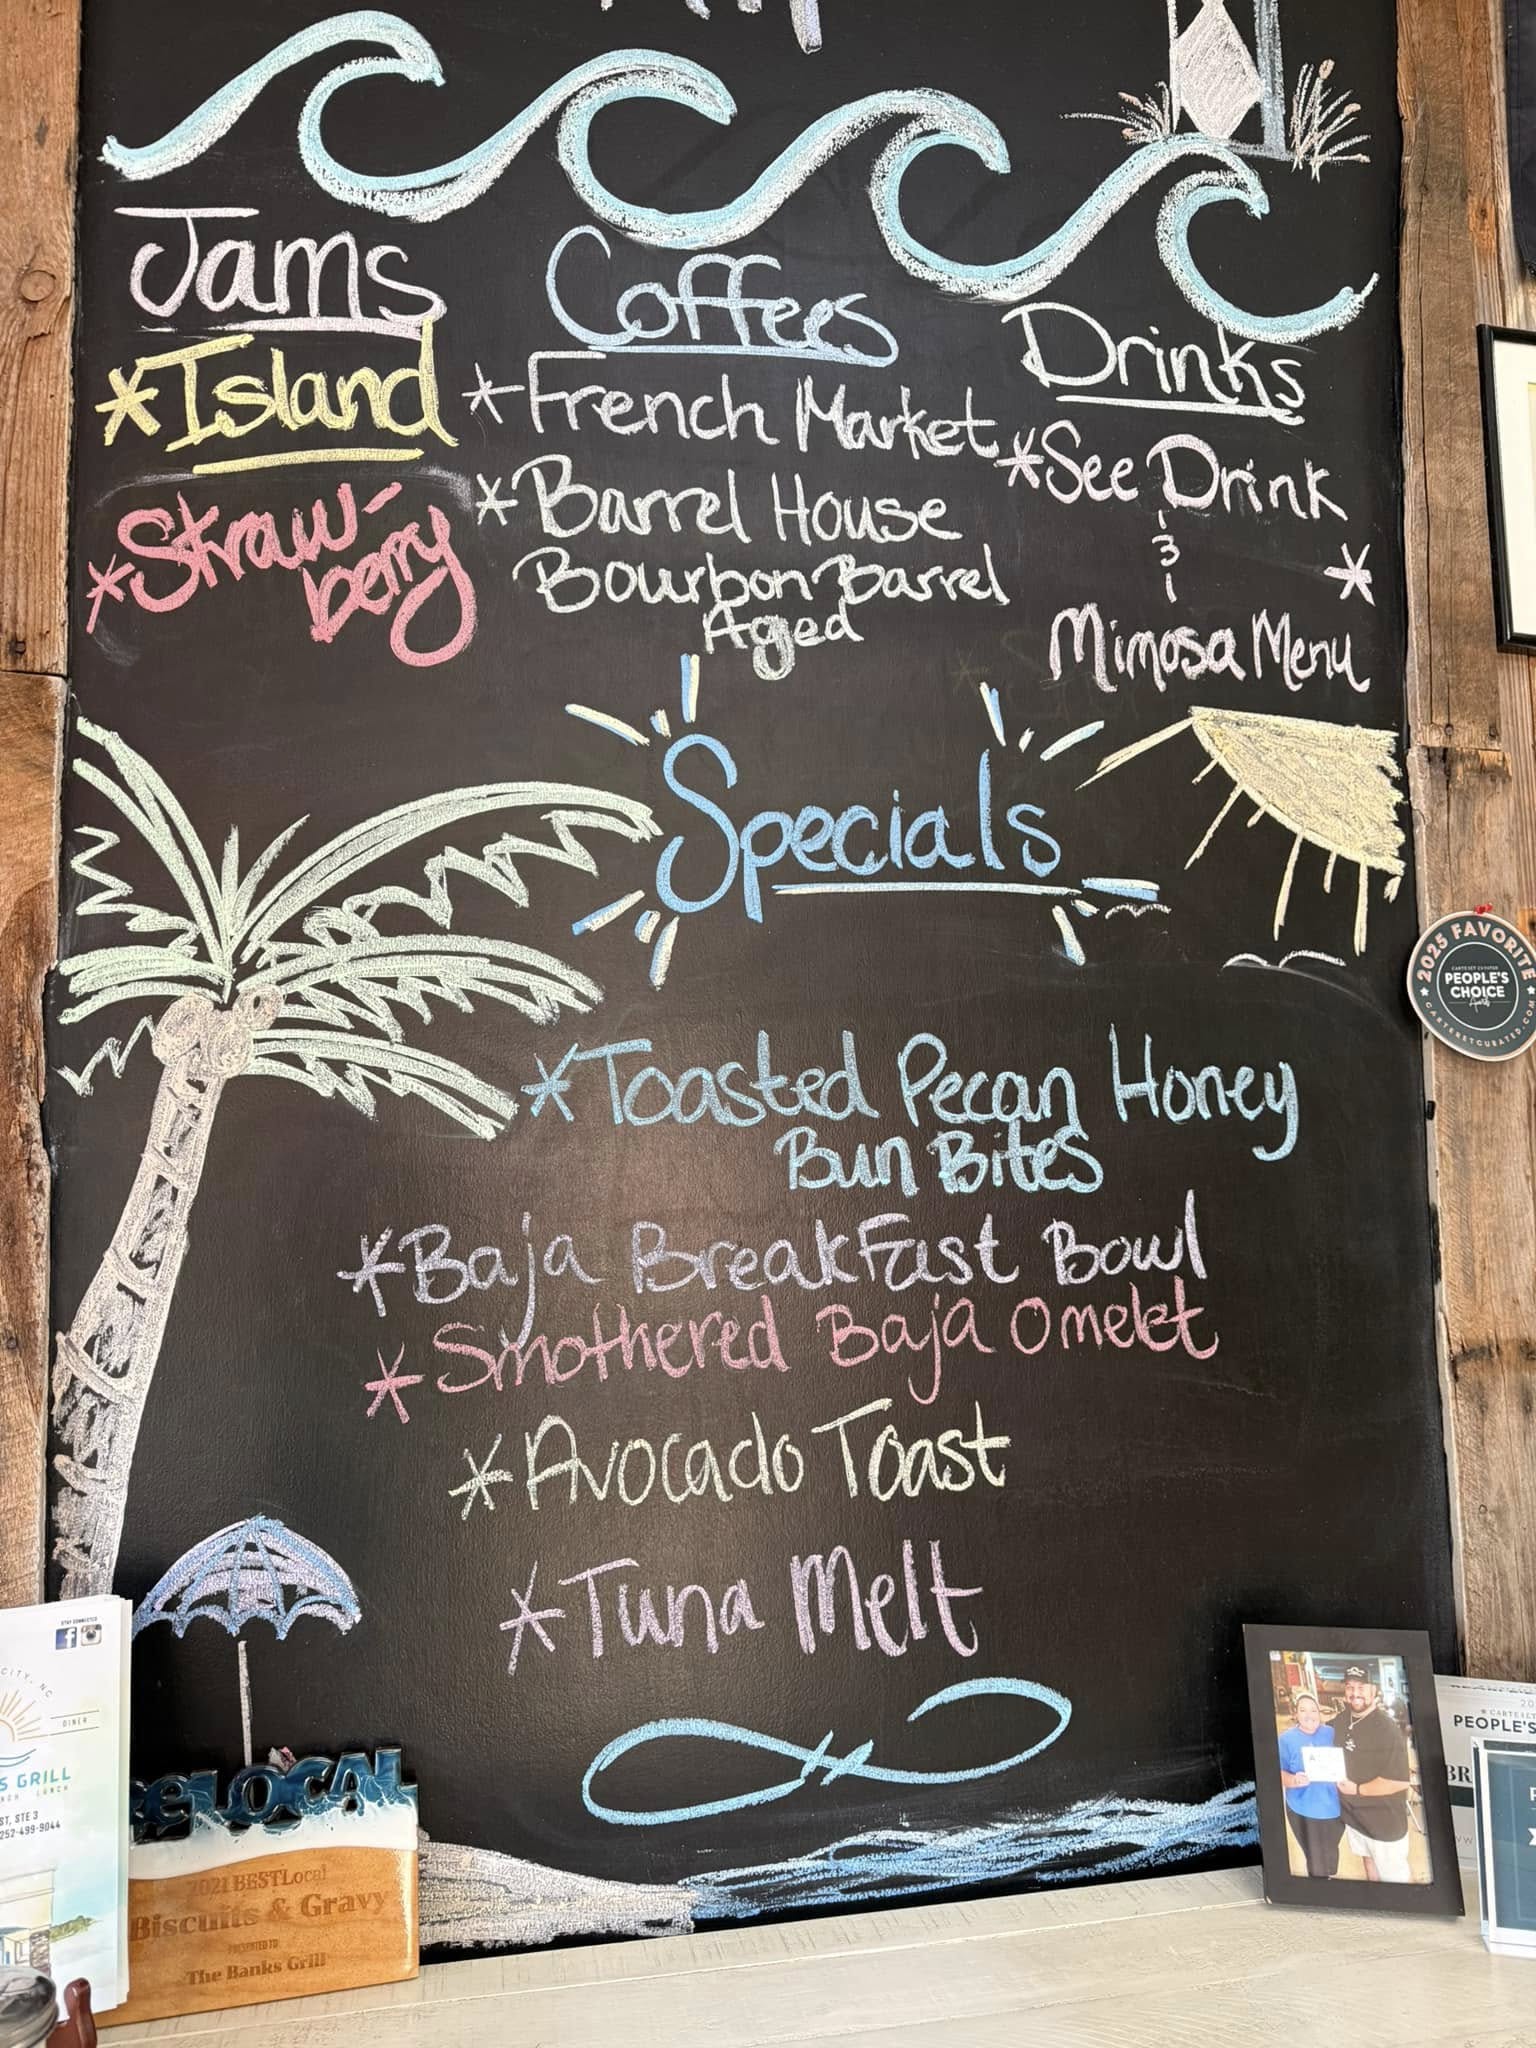 Jams
*Island
*Straw-
berry
Coffees
*French Market
*Barrel House
Bourbon Barrel
Aged
Drinks
*See Drink
3
*
Mimosa Menu
Specials
*Toasted Pecan Honey
Bun Bites
*Baja Breakfast Bowl
*Smothered Baja Omelet
*Avocado Toast
*Tuna Melt
2025 FAVORITE
CARTERET CURATED
PEOPLE'S
CHOICE
Awards
CARTERETCURATED.COM
STAY CONNECTED
CITY, NC
DINER
S GRILL
LUNCH
ST, STE 3
252-499-9044
BeLOCAL
2021 BESTLocal
Biscuits & Gravy
PRESENTED TO
The Banks Grill
PEOPLE'S
BR